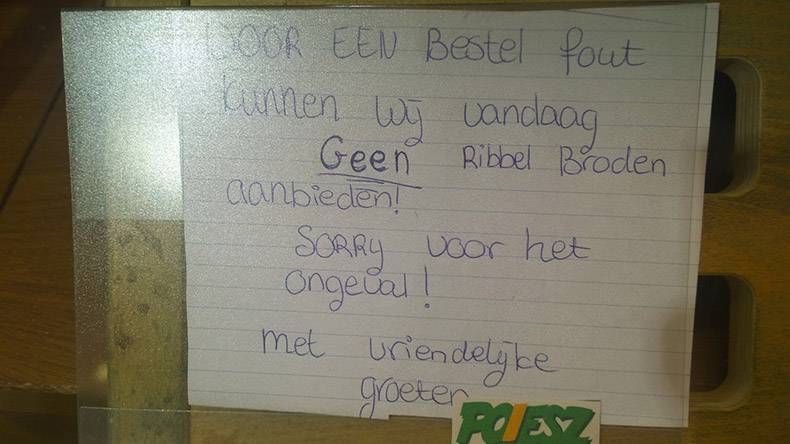 DOOR EEN Bestel fout
kunnen wij vandaag
Geen Ribbel Broden
aanbieden!
SORRY voor het
ongeval!
met vriendelijke
groeten
POIESZ